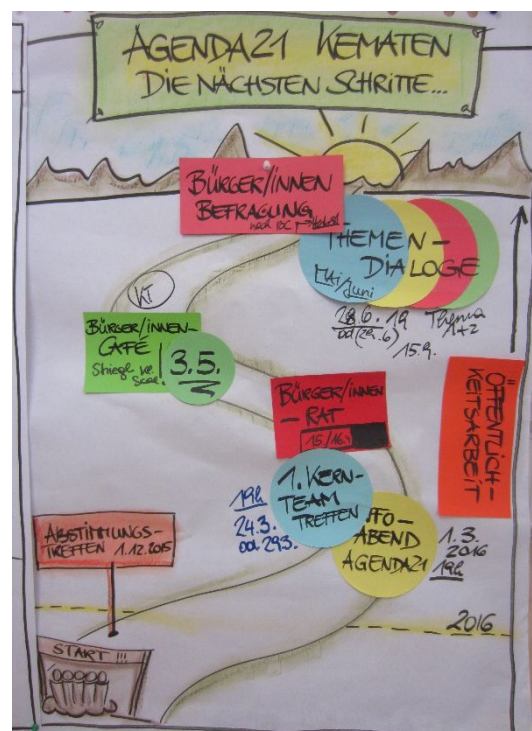 AGENDA21 KEMATEN
DIE NÄCHSTEN SCHRITTE...
BÜRGER/INNEN
BEFRAGUNG
nach BC
THEMEN-
DIALOGE
Mai/Juni
28.6. 19
od (29.6)
Thema
1+2
15.9.
KT
BÜRGER/INNEN-
CAFÉ
Stiegl. Ke.
Saal
3.5.
BÜRGER/INNEN
- RAT
15./16.4
ÖFFENTLICH-
KEITSARBEIT
1. KERN-
TEAM
TREFFEN
19h
24.3.
od 29.3.
INFO-
ABEND
AGENDA21
1.3.
2016
19h
ABSTIMMUNGS-
TREFFEN 1.12.2015
2016
START !!!